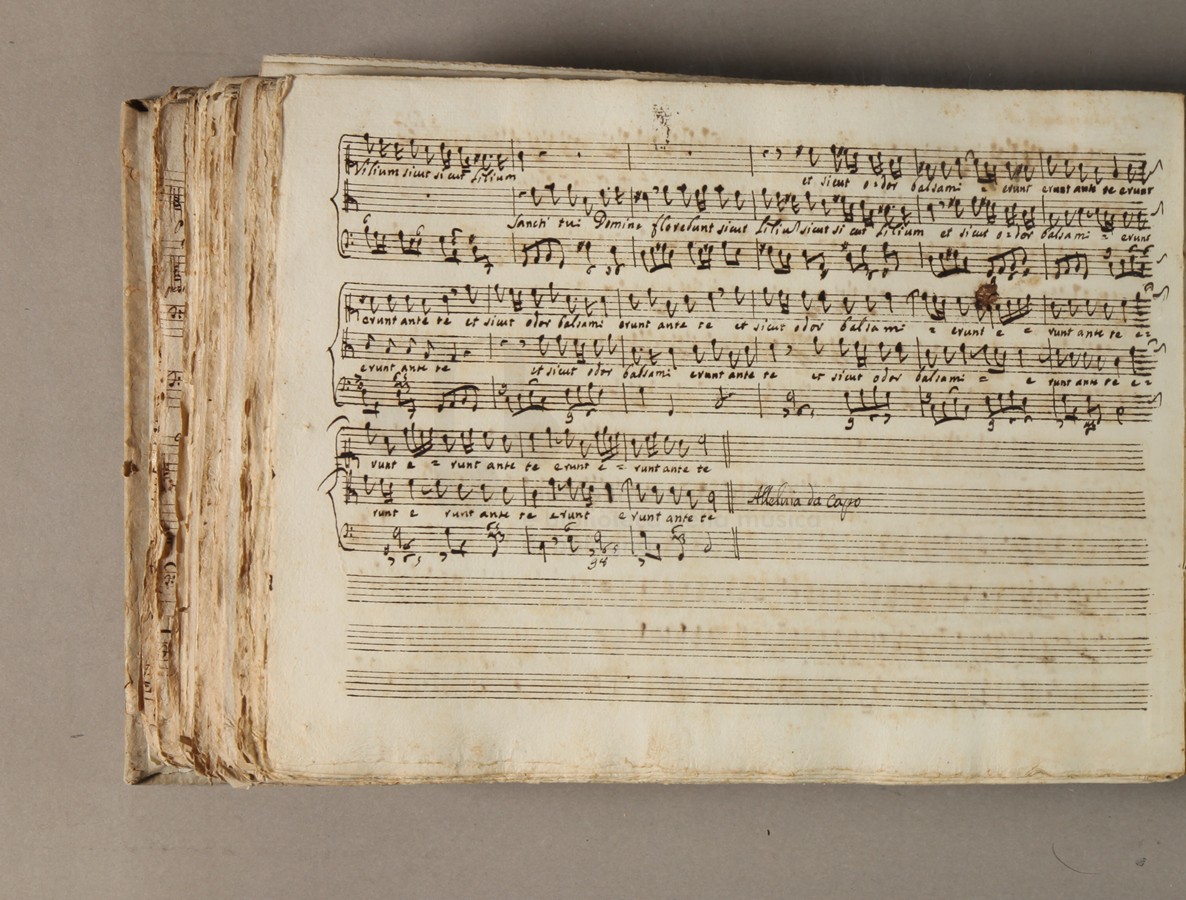 lilium sicut sicut lilium et sicut odor balsami = erunt erunt ante te erunt
Sancti tui Domine florebunt sicut lilium sicut sicut lilium et sicut odor balsami = erunt
erunt ante te et sicut odor balsami erunt ante te et sicut odor balsami = erunt e e runt ante te e=
erunt ante te et sicut odor balsami erunt ante te et sicut odor balsami = e runt ante te e=
runt e = runt ante te erunt e = runt ante te
runt e runt ante te erunt e runt ante te
Alleluia da Capo